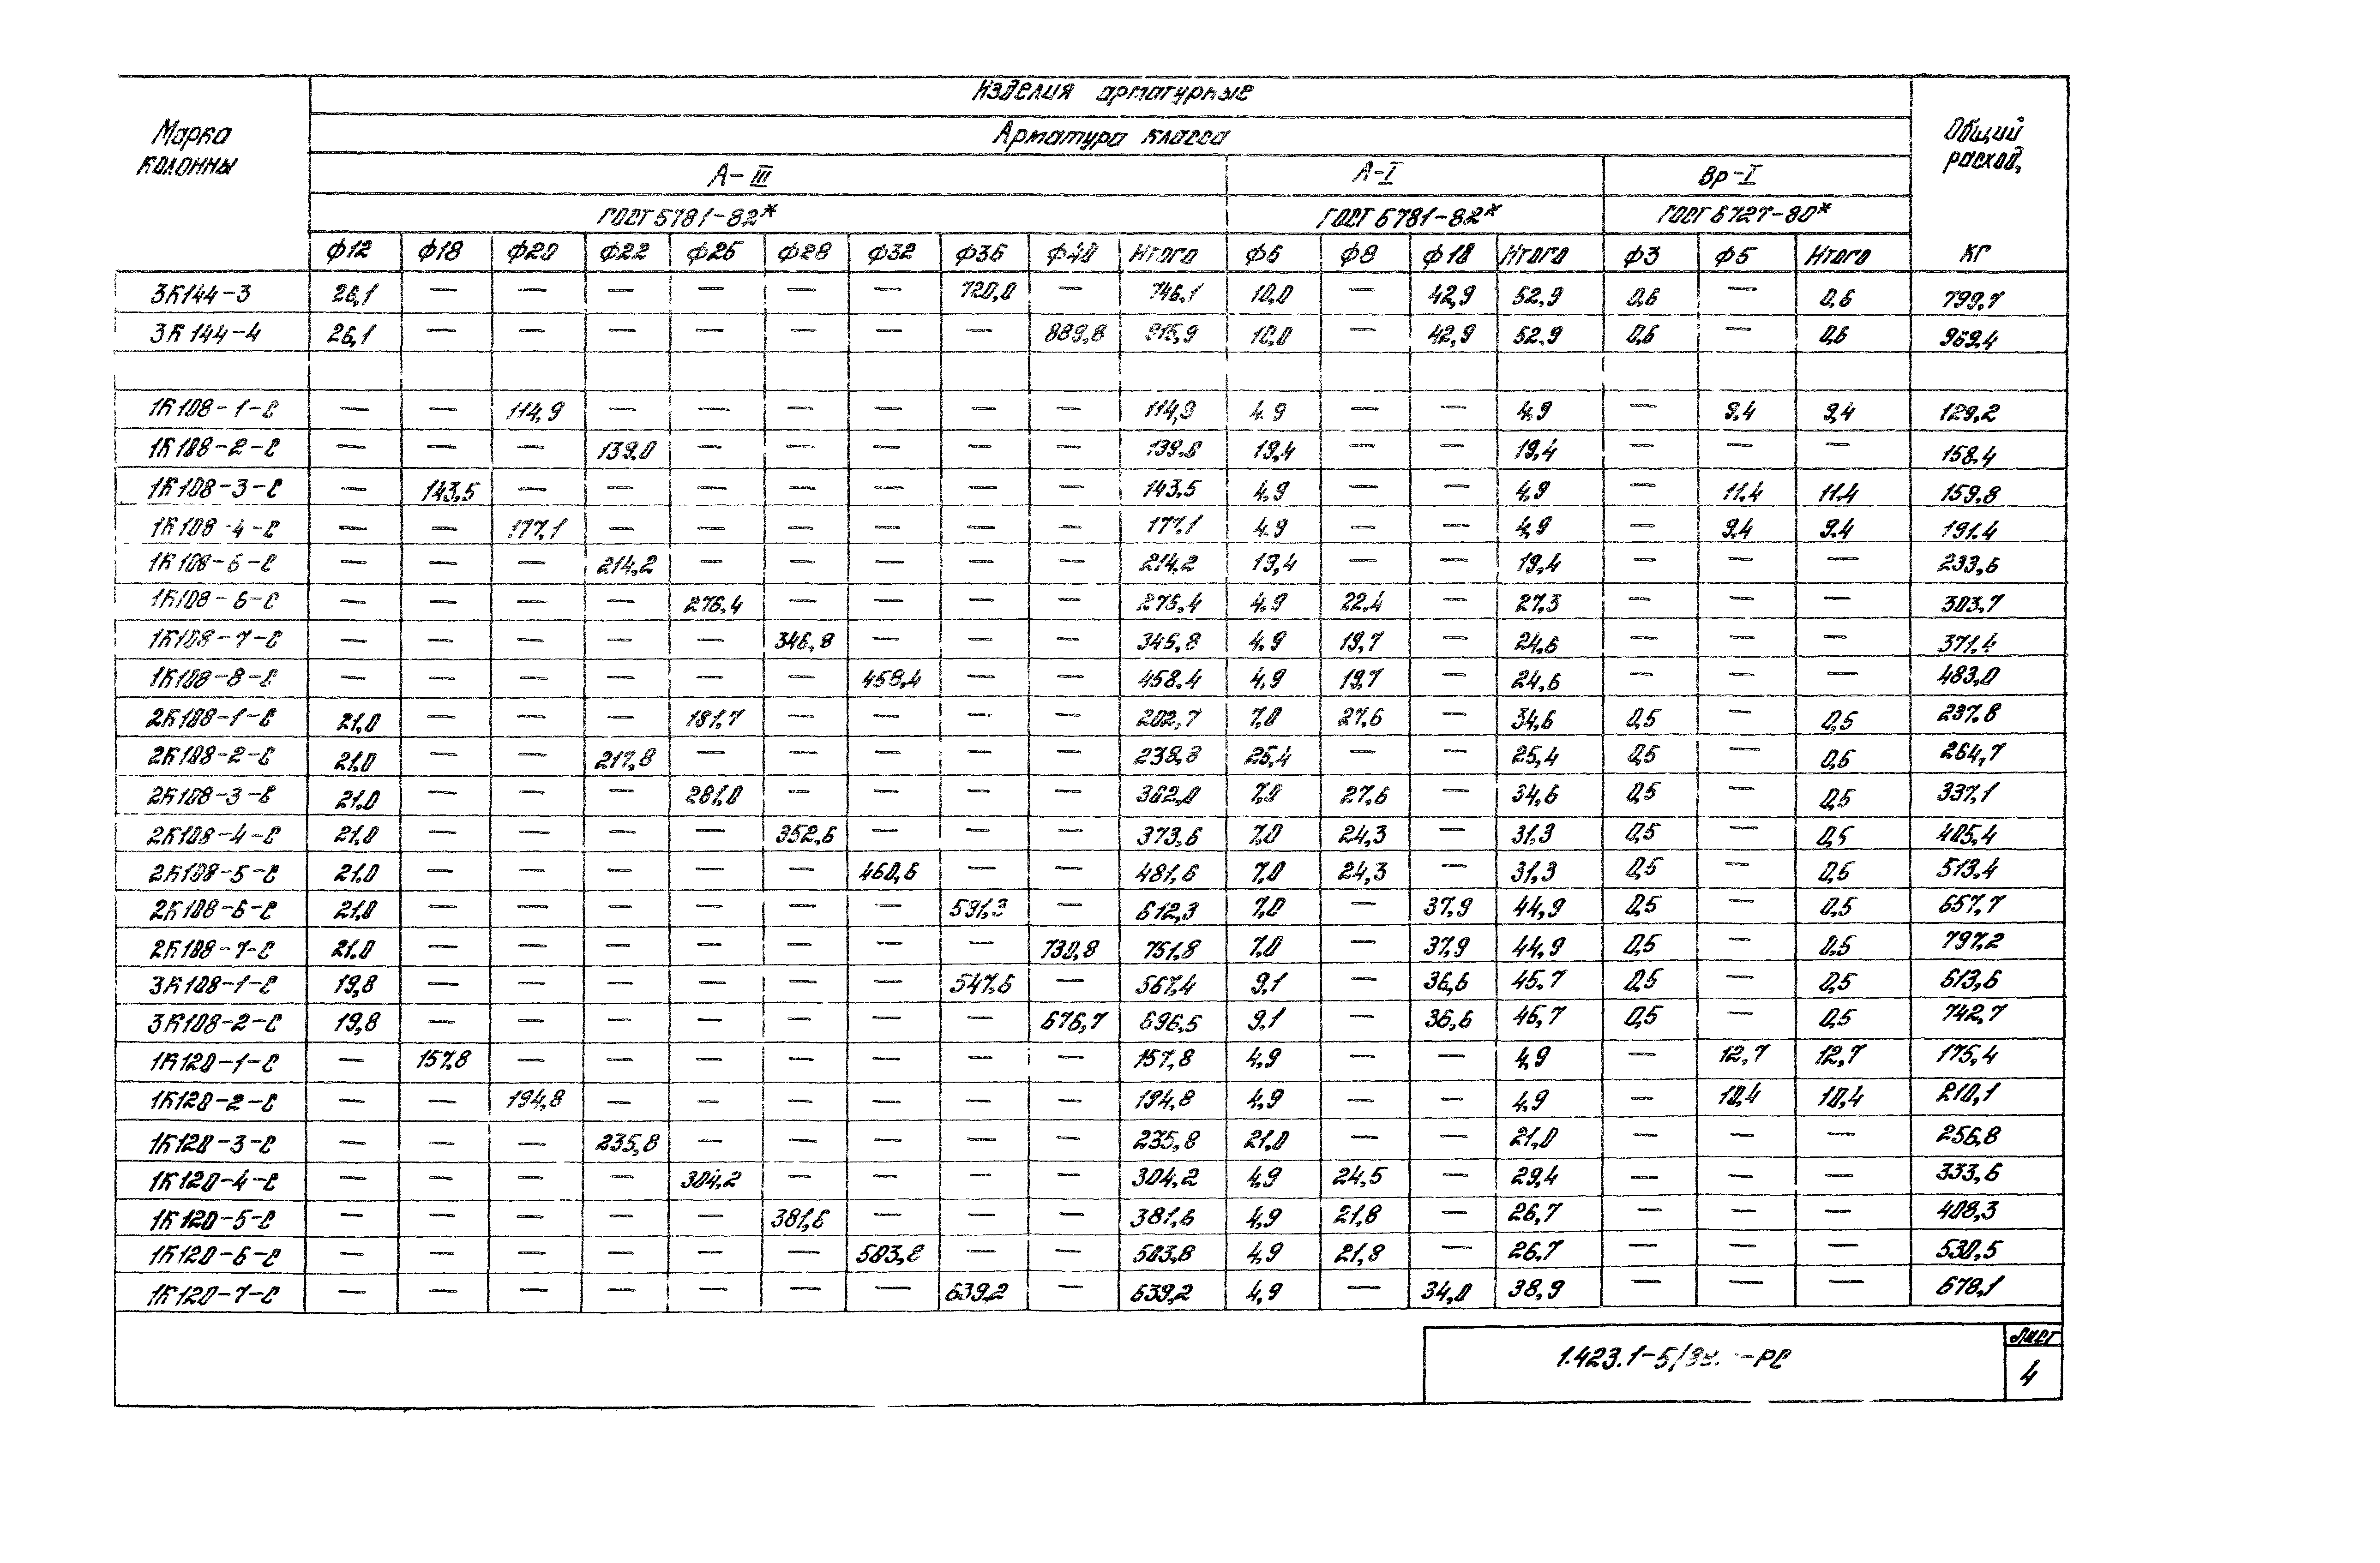 Изделия арматурные
Марка колонны
Арматура класса
Общий расход,
А-III А-I Вр-I
ГОСТ 5781-82* ГОСТ 5781-82* ГОСТ 6727-80*
Ф12 Ф18 Ф20 Ф22 Ф25 Ф28 Ф32 Ф36 Ф40 Итого Ф6 Ф8 Ф18 Итого Ф3 Ф5 Итого кг
3К144-3 26,1 — — — — — — 720,0 — 746,1 10,0 — 42,9 52,9 0,6 — 0,6 799,7
3К144-4 26,1 — — — — — — — 889,8 915,9 10,0 — 42,9 52,9 0,6 — 0,6 969,4
1К108-1-С — — 114,9 — — — — — — 114,9 4,9 — — 4,9 — 9,4 9,4 129,2
1К108-2-С — — — 139,0 — — — — — 139,0 19,4 — — 19,4 — — — 158,4
1К108-3-С — 143,5 — — — — — — — 143,5 4,9 — — 4,9 — 11,4 11,4 159,8
1К108-4-С — — 177,1 — — — — — — 177,1 4,9 — — 4,9 — 9,4 9,4 191,4
1К108-5-С — — — 214,2 — — — — — 214,2 19,4 — — 19,4 — — — 233,6
1К108-6-С — — — — 276,4 — — — — 276,4 4,9 22,4 — 27,3 — — — 303,7
1К108-7-С — — — — — 346,8 — — — 346,8 4,9 19,7 — 24,6 — — — 371,4
1К108-8-С — — — — — — 458,4 — — 458,4 4,9 19,7 — 24,6 — — — 483,0
2К108-1-С 21,0 — — — 181,7 — — — — 202,7 7,0 27,6 — 34,6 0,5 — 0,5 237,8
2К108-2-С 21,0 — — 217,8 — — — — — 238,8 25,4 — — 25,4 0,5 — 0,5 264,7
2К108-3-С 21,0 — — — 281,0 — — — — 302,0 7,0 27,6 — 34,6 0,5 — 0,5 337,1
2К108-4-С 21,0 — — — — 352,6 — — — 373,6 7,0 24,3 — 31,3 0,5 — 0,5 405,4
2К108-5-С 21,0 — — — — — 460,6 — — 481,6 7,0 24,3 — 31,3 0,5 — 0,5 513,4
2К108-6-С 21,0 — — — — — — 591,3 — 612,3 7,0 — 37,9 44,9 0,5 — 0,5 657,7
2К108-7-С 21,0 — — — — — — — 730,8 751,8 7,0 — 37,9 44,9 0,5 — 0,5 797,2
3К108-1-С 19,8 — — — — — — 547,6 — 567,4 9,1 — 36,6 45,7 0,5 — 0,5 613,6
3К108-2-С 19,8 — — — — — — — 676,7 696,5 9,1 — 36,6 45,7 0,5 — 0,5 742,7
1К120-1-С — 157,8 — — — — — — — 157,8 4,9 — — 4,9 — 12,7 12,7 175,4
1К120-2-С — — 194,8 — — — — — — 194,8 4,9 — — 4,9 — 10,4 10,4 210,1
1К120-3-С — — — 235,8 — — — — — 235,8 21,0 — — 21,0 — — — 256,8
1К120-4-С — — — — 304,2 — — — — 304,2 4,9 24,5 — 29,4 — — — 333,6
1К120-5-С — — — — — 381,6 — — — 381,6 4,9 21,8 — 26,7 — — — 408,3
1К120-6-С — — — — — — 503,8 — — 503,8 4,9 21,8 — 26,7 — — — 530,5
1К120-7-С — — — — — — — 639,2 — 639,2 4,9 — 34,0 38,9 — — — 678,1
1.423.1-5/ -РС
Лист
4